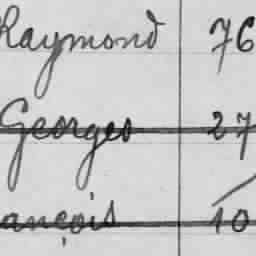 Raymond 76
Georges 27
ançois 10